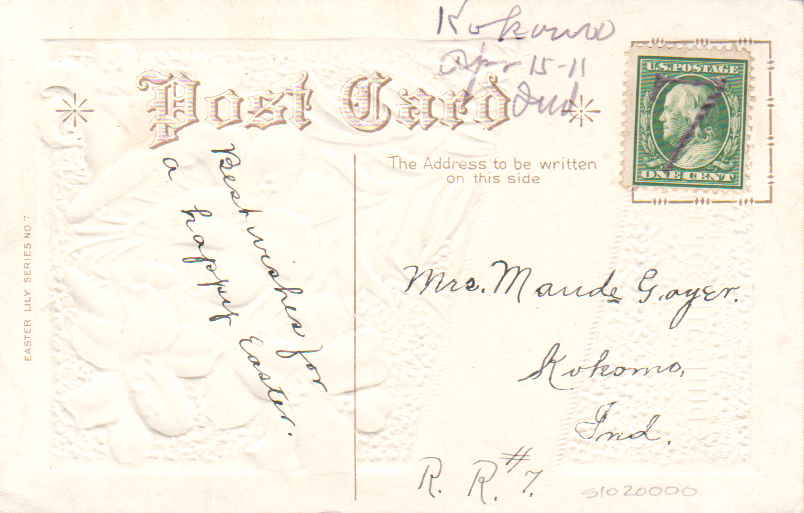 Kokomo
Apr 15-11
Ind
Post Card
U.S. POSTAGE
ONE CENT
7
The Address to be written
on this side
Best wishes for
a happy Easter.
Mrs. Maude Goyer.
Kokomo,
Ind.
R. R. #7.
EASTER LILY SERIES NO. 7
51020000